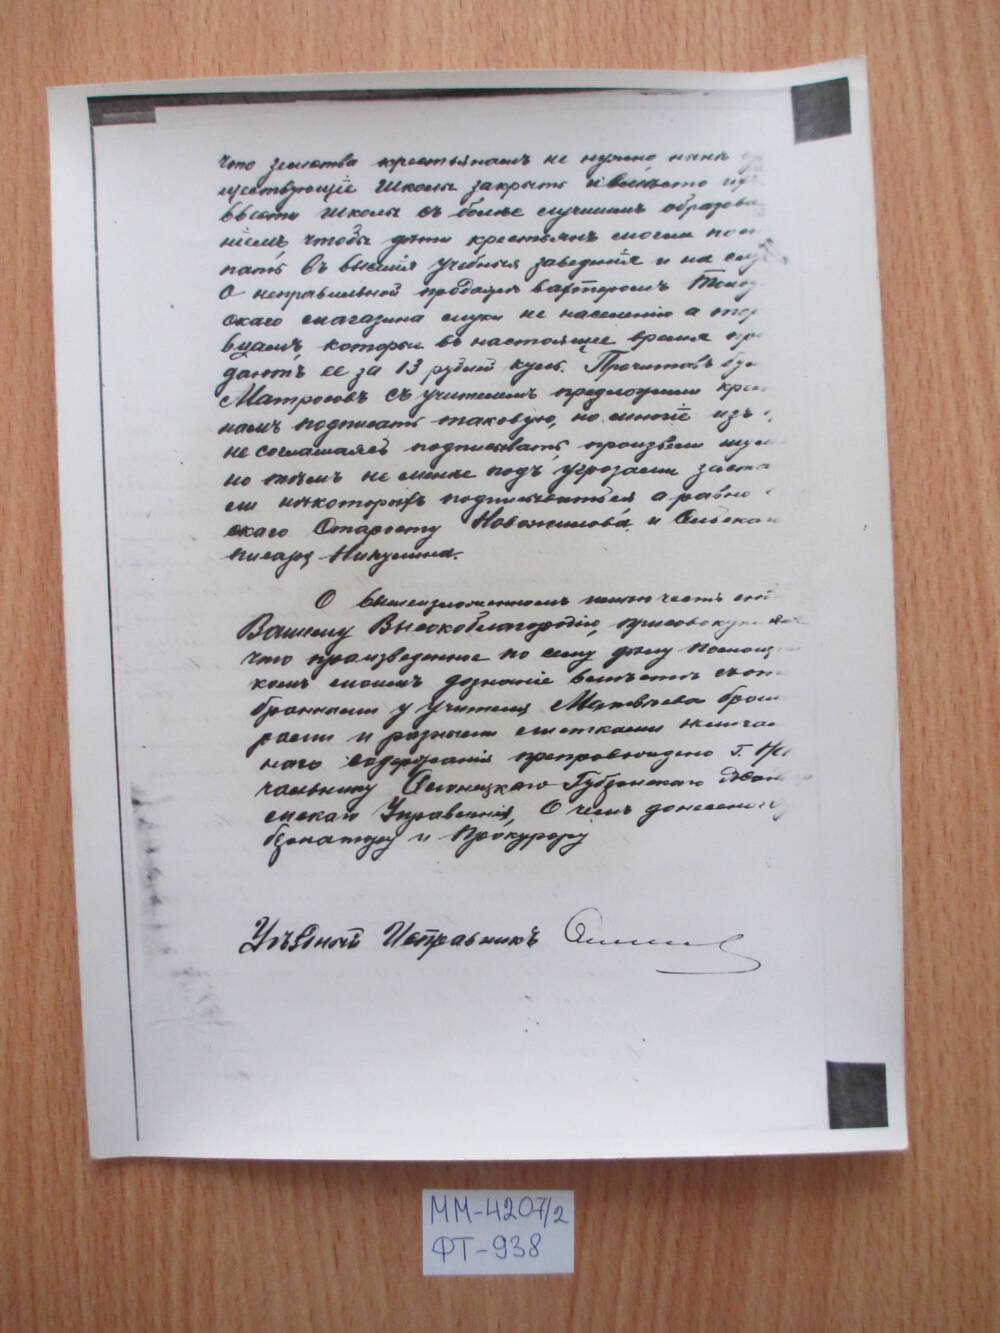 что земства крестьянамъ не нужно нынѣ
ществующіе школы закрыть и вмѣсто
ввести школы съ болѣе лучшимъ образова
ніемъ, чтобы дѣти крестьянъ могли пост
пать въ высшія учебныя заведенія и на
О неправильной продажѣ вахтеромъ
скаго магазина муки не населенію а тор
вцамъ которые въ настоящее время про
даютъ ее за 13 рублей куль. Прочитавъ
Матросовъ съ учителемъ предложили крест
намъ подписать таковую, но многіе изъ
не соглашаясь подписывать, произвели шумъ
но тѣмъ не менѣе подъ угрозами заста
ли нѣкоторыхъ подписываться а равно
скаго Старосту Новожилова и Сельскаго
писаря Никулина.
О вышеизложенномъ имѣю честь
Вашему Высокоблагородію, присовокупляя
что произведенное по сему дѣлу Помощни
комъ моимъ дознаніе вмѣстѣ съ от
бранными у учителя Матвѣева брошю
рами и разными листками нелегаль
наго содержанія препровождено г. На
чальнику Олонецкаго Губернскаго Жандар
мскаго Управленія, О чемъ донесено Гу
бернатору и Прокурору
Уѣздный Исправникъ
ММ-4207/2
ФТ-938